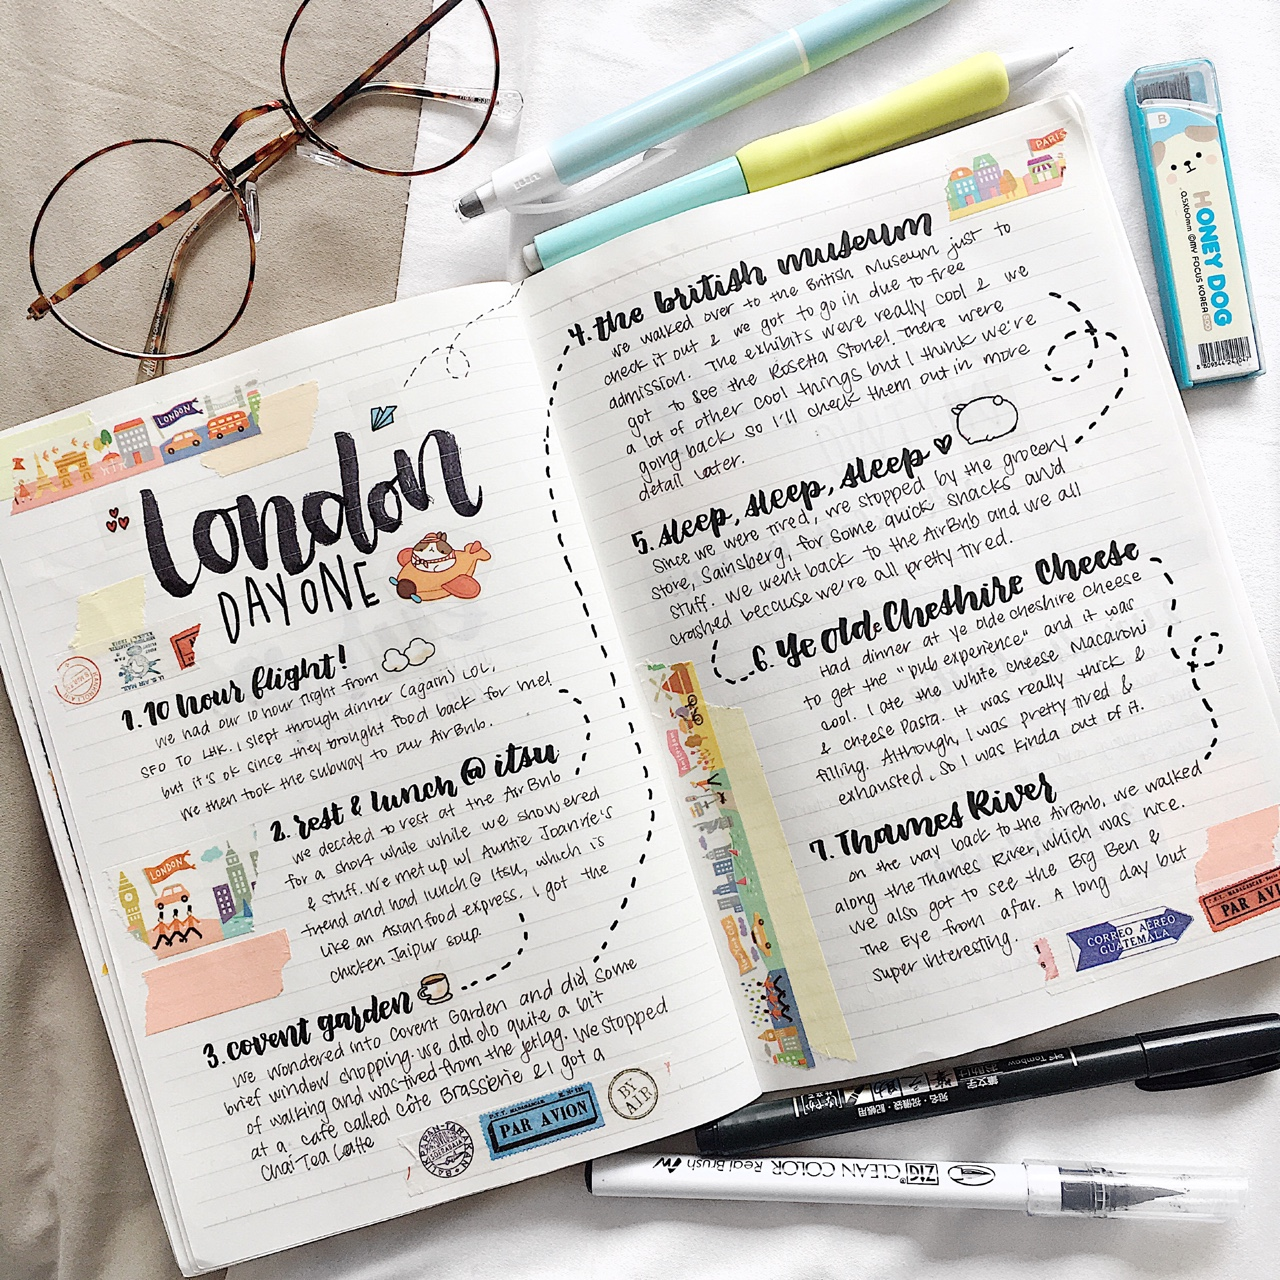 LONDON
London
DAY ONE
1. 10 hour flight!
We had our 10 hour flight from
SFO TO LHR. I slept through dinner (again) LOL,
but it's ok since they brought food back for me!
We then took the subway to our AirBnb.
2. rest & lunch @ itsu
We decided to rest at the AirBnb
for a short while while we showered
& stuff. We met up w/ Auntie Joannie's
friend and had lunch @ Itsu, which is
like an Asian food express. I got the
chicken Jaipur soup.
LONDON
3. covent garden
We wondered into Covent Garden and did some
brief window shopping. We did do quite a bit
of walking and was tired from the jetlag. We stopped
at a cafe called Côte Brasserie & I got a
Chai Tea Latte
PAR AVION
BY AIR
PARIS
4. the british museum
We walked over to the British Museum just to
check it out & we got to go in due to free
admission. The exhibits were really cool & we
got to see the Rosetta Stone! There were
a lot of other cool things but I think we're
going back so I'll check them out in more
detail later.
5. sleep, sleep, sleep
Since we were tired, we stopped by the grocery
store, Sainsberg, for some quick snacks and
stuff. We went back to the AirBnb and we all
crashed because we're all pretty tired.
6. Ye Olde Cheshire Cheese
Had dinner at Ye Olde Cheshire Cheese
to get the "pub experience" and it was
cool. I ate the White Cheese Macaroni
& Cheese Pasta. It was really thick &
filling. Although, I was pretty tired &
exhausted, so I was kinda out of it.
7. Thames River
On the way back to the AirBnb, we walked
along the Thames River, which was nice.
We also got to see the Big Ben &
The Eye from afar. A long day but
super interesting.
CORREO AEREO
GUATEMALA
PAR AVI
B
HONEY DOG
0.5X60mm ©MY FOCUS KOREA
Tombow
ZIG CLEAN COLOR Real Brush